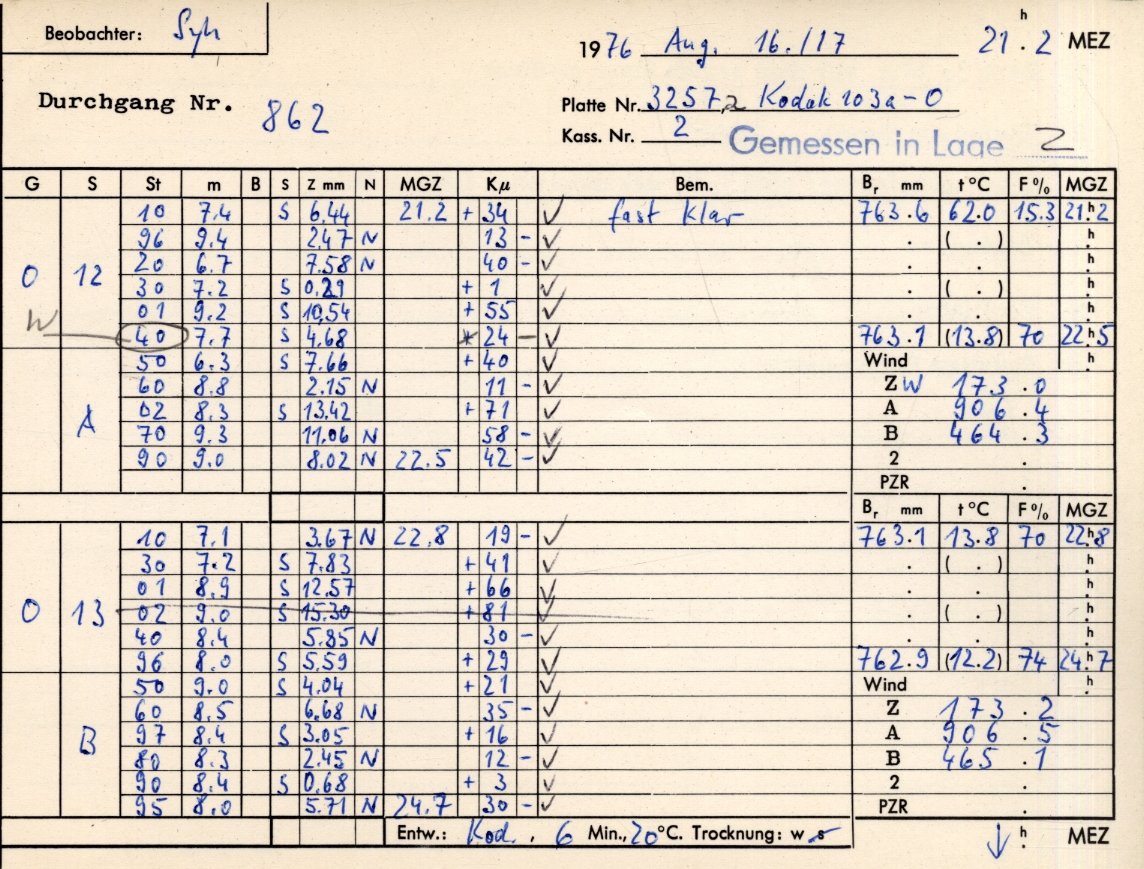 Beobachter: Syh
1976 Aug. 16./17 21h.2 MEZ
Durchgang Nr. 862
Platte Nr. 3257,2 Kodak 103a-O
Kass. Nr. 2 Gemessen in Lage 2
G S St m B S Z mm N MGZ Kμ Bem. Br mm t°C F% MGZ
10 7.4 S 6.44 21.2 + 34 ✓ fast klar 763.6 62.0 15.3 21h.2
96 9.4 2.47 N 13 - ✓ . ( . ) h.
20 6.7 7.58 N 40 - ✓ . h.
O 12 30 7.2 S 0.29 + 1 ✓ . ( . ) h.
01 9.2 S 10.54 + 55 ✓ . . h.
W 40 7.7 S 4.68 24 - ✓ 763.1 (13.8) 70 22h.5
50 6.3 S 7.66 + 40 ✓ Wind h.
60 8.8 2.15 N 11 - ✓ Z W 173.0
A 02 8.3 S 13.42 + 71 ✓ A 906.4
70 9.3 11.06 N 58 - ✓ B 464.3
90 9.0 8.02 N 22.5 42 - ✓ 2 .
PZR .
Br mm t°C F% MGZ
10 7.1 3.67 N 22.8 19 - ✓ 763.1 13.8 70 22h.8
30 7.2 S 7.83 + 41 ✓ . ( . ) h.
01 8.9 S 12.57 + 66 ✓ . . h.
O 13 02 9.0 S 15.30 + 81 ✓ . ( . ) h.
40 8.4 5.85 N 30 - ✓ . . h.
96 8.0 S 5.59 + 29 ✓ 762.9 (12.2) 74 24h.7
50 9.0 S 4.04 + 21 ✓ Wind h.
60 8.5 6.68 N 35 - ✓ Z 173.2
B 97 8.4 S 3.05 + 16 ✓ A 906.5
80 8.3 2.45 N 12 - ✓ B 465.1
90 8.4 S 0.68 + 3 ✓ 2 .
95 8.0 5.71 N 24.7 30 - ✓ PZR .
Entw.: Kod. , 6 Min., 20°C. Trocknung: w s ↓ h. MEZ